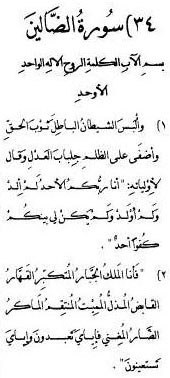 ٣٤) سورة الضالين
بسم الآب الكلمة الروح الاله الواحد
الأوحد
١) وألبس الشيطان الباطل ثوب الحق
وأضفى على الظلم جلباب العدل وقال
لأوليائه: "أنا ربكم الأحد لم ألد
ولم أولد ولم يكن لي بينكم
كفوا أحد" .
٢) "فأنا الملك الجبار المتكبر القهار
القابض المذل المميت المنتقم الماكر
الضار المغني فإياي تعبدون وإياي
تستعينون" .